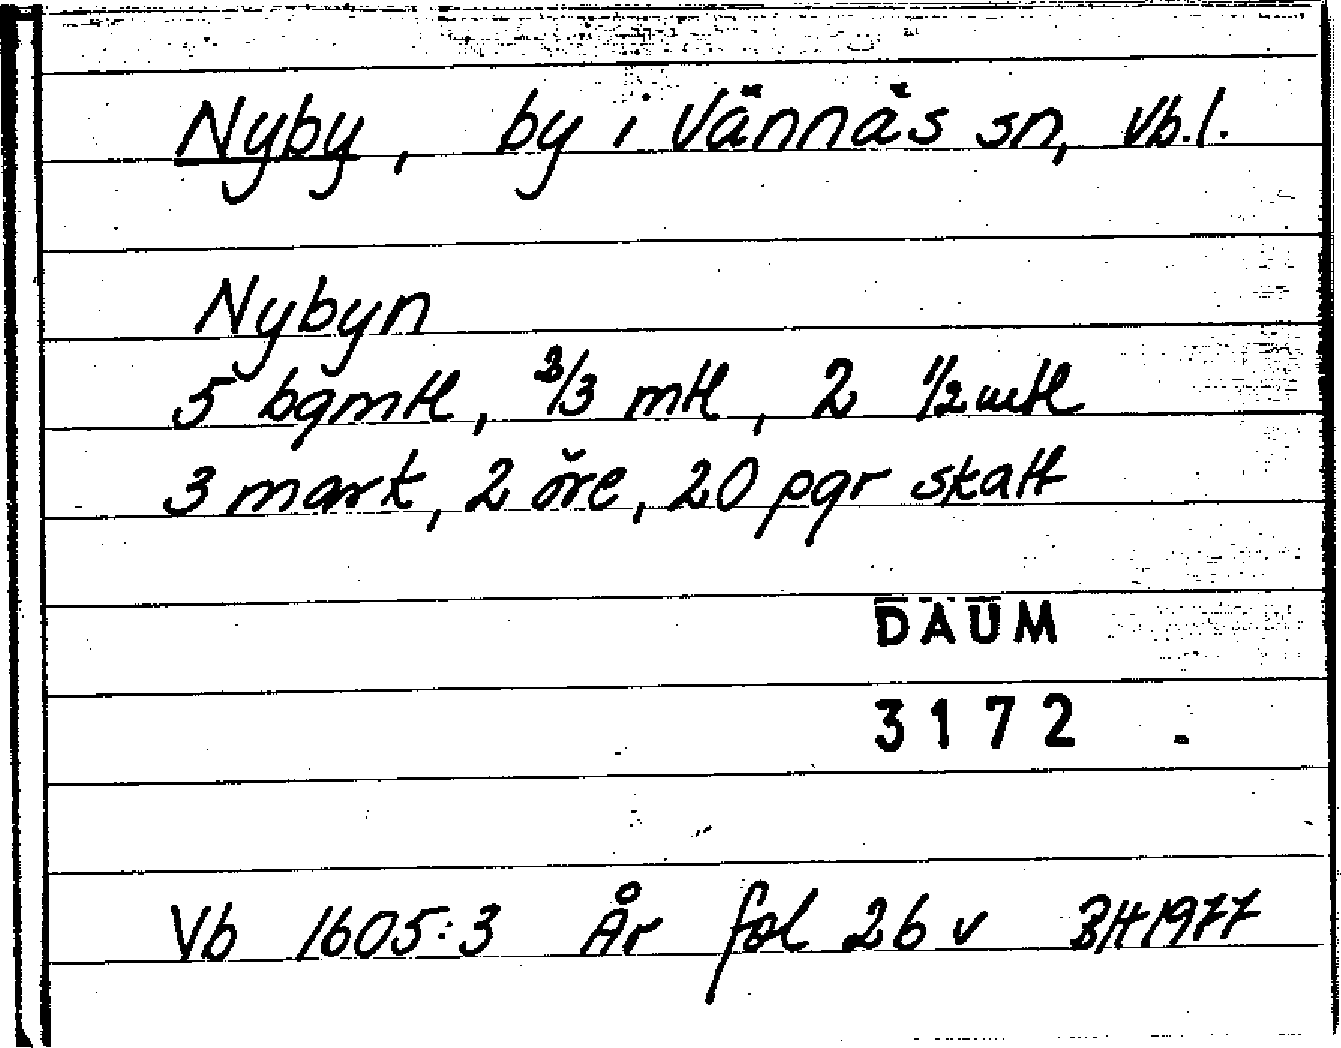 Nyby, by i Vännäs sn, Vb.l.
Nybyn
5 bgmtl, 2/3 mtl, 2 1/2 mtl
3 mark, 2 öre, 20 pgr skatt
DAUM
3172
Vb 1605:3 År fol 26 v BH 1977